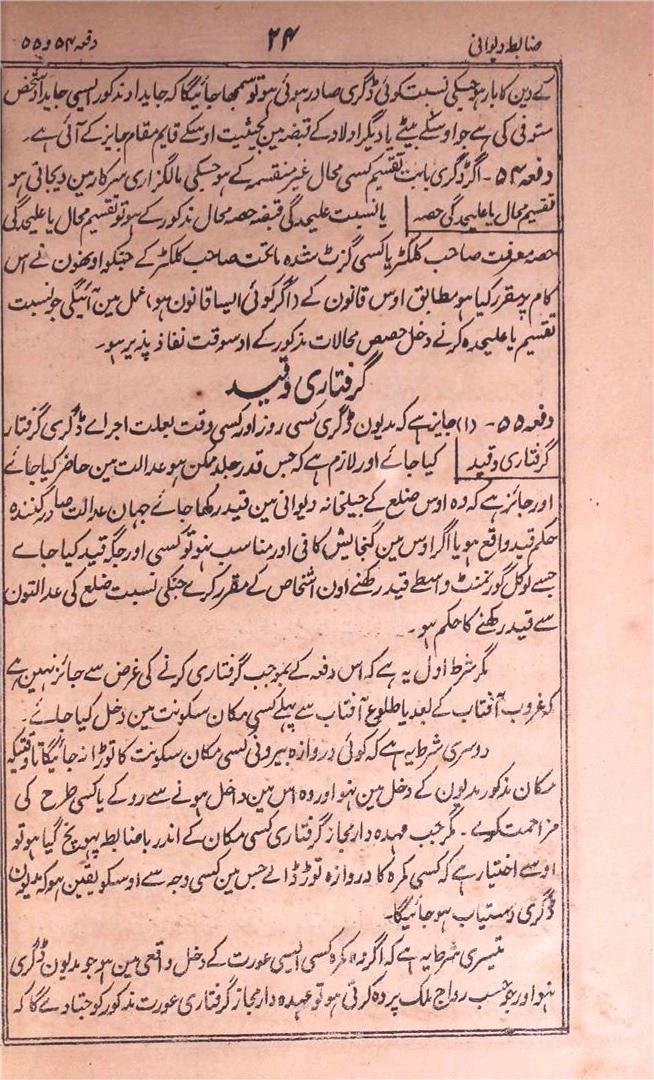 ضابطہ دیوانی ۲۴ دفعہ ۵۴ و ۵۵
کے دین کا بار ہو جسکی نسبت کوئی ڈگری صادر ہوئی ہو تو سمجھا جائیگا کہ جایداد مذکور ایسی جایداد شخص
متوفی کی ہے جو اوسکے بیٹے یا دیگر اولاد کے قبضہ مین بحیثیت اوسکے قایم مقام جایز کے آئی ہے۔
دفعہ ۵۴۔ اگر ڈگری بابت تقسیم کسی محال غیر منقسمہ کے ہو جسکی مالگزاری سرکار مین دیجاتی ہو
تقسیم محال یا علیحدگی حصہ یا نسبت علیحدگی قبضہ حصہ محال مذکور کے ہو تو تقسیم محال یا علیحدگی
حصہ معرفت صاحب کلکٹر یا کسی گزٹ شدہ ماتحت صاحب کلکٹر کے جنکو اونھون نے اس
کام پر مقرر کیا ہو مطابق اوس قانون کے (اگر کوئی ایسا قانون ہو) عمل مین آئیگی جو نسبت
تقسیم یا علیحدہ کرنے دخل حصص محالات مذکور کے اوسوقت نفاذ پذیر ہو۔
گرفتاری و قید
دفعہ ۵۵۔ (۱) جایز ہے کہ مدیون ڈگری کسی روز اور کسی وقت بعلت اجراے ڈگری گرفتار
گرفتاری و قید کیا جائے اور لازم ہے کہ جس قدر جلد ممکن ہو عدالت مین حاضر کیا جائے
اور جائز ہے کہ وہ اوس ضلع کے جیلخانہ دیوانی مین قید رکھا جائے جہان عدالت صادر کنندہ
حکم قید واقع ہو یا اگر اوس مین گنجایش کافی اور مناسب نہو تو کسی اور جگہ قید کیا جاے
جسے لوکل گورنمنٹ واسطے قید رکھنے اون اشخاص کے مقرر کرے جنکی نسبت ضلع کی عدالتون
سے قید رکھنے کا حکم ہو۔
مگر شرط اول یہ ہے کہ اس دفعہ کے بموجب گرفتاری کرنے کی غرض سے جائز نہین ہے
کہ غروب آفتاب کے بعد یا طلوع آفتاب سے پہلے کسی مکان سکونت مین دخل کیا جائے۔
دوسری شرط یہ ہے کہ کوئی دروازہ بیرونی کسی مکان سکونت کا توڑا نہ جائیگا تاوقتیکہ
مکان مذکور مدیون کے دخل مین نہو اور وہ اس مین داخل ہونے سے روکے یا کسی طرح کی
مزاحمت کرے۔ مگر جب عہدہ دار مجاز گرفتاری کسی مکان کے اندر باضابطہ پہونچ گیا ہو تو
اوسے اختیار ہے کہ کسی کمرہ کا دروازہ توڑ ڈالے جس مین کسی وجہ سے اوسکو یقین ہو کہ مدیون
ڈگری دستیاب ہو جائیگا۔
تیسری شرط یہ ہے کہ اگر وہ کمرہ کسی ایسی عورت کے دخل واقعی مین ہو جو مدیون ڈگری
نہو اور جو حسب رواج ملک پردہ کرتی ہو تو عہدہ دار مجاز گرفتاری عورت مذکور کو جتا دے گا کہ